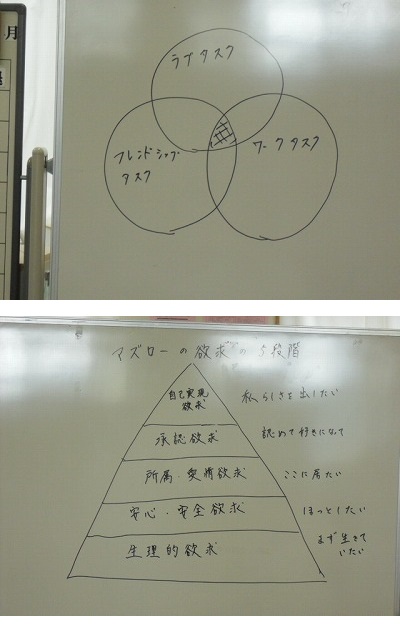 月
ラブタスク
フレンドシップ
タスク
ワークタスク
マズローの欲求の5段階
自己実現
欲求
私らしさを出したい
承認欲求
認めて好きになって
所属・愛情欲求
ここに居たい
安心・安全欲求
ほっとしたい
生理的欲求
まず生きて
いたい